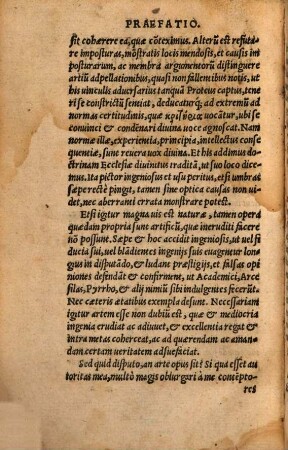 PRAEFATIO.
sit cohærere ea, quæ cōteximus. Alterū est refuta
re imposturas, mōstratis locis mendosis, et causis im
posturarum, ac membra argumentorū distinguere
artiū adpellationibus, quasi non fallentibus notis, ut
his uinculis aduersarius tanquā Proteus captus, tene
ri se constrictū sentiat, deducaturq; ad extremū ad
normas certitudinis, quæ κριτήρια uocātur, ubi se
conuinci & condēnari diuina uoce agnoscat. Nam
normæ illæ, experientia, principia, intellectus conse
quentiæ, sunt reuera uox diuina. Et his addimus do
ctrinam Ecclesiæ diuinitus traditā, ut suo loco dice
mus. Ita pictor ingeniosus et usu peritus, etsi umbras
sæpe rectè pingit, tamen sine optica causas non ui
det, nec aberranti errata monstrare potest.
Etsi igitur magna uis est naturæ, tamen opera
quædam propria sunt artificū, quæ ineruditi facere
nō possunt. Sæpe & hoc accidit ingeniosis, ut uel fi
ducia sui, uel blādientes ingenijs suis euagentur lon
gius in disputādo, & ludant præstigijs, et falsas opi
niones defendāt & confirment, ut Academici, Arce
silas, Pyrrho, & alij nimiū sibi indulgentes fecerūt.
Nec cæteris ætatibus exempla desunt. Necessariam
igitur artem esse non dubiū est, quæ & mediocria
ingenia erudiat ac adiuuet, & excellentia regat & in
tra metas coherceat, ac ad quærendam ac aman
dam certam ueritatem adsuefaciat.
Sed quid disputo, an arte opus sit? Si qua esset au
toritas mea, multò magis obiurgari à me cōtēpto-
res